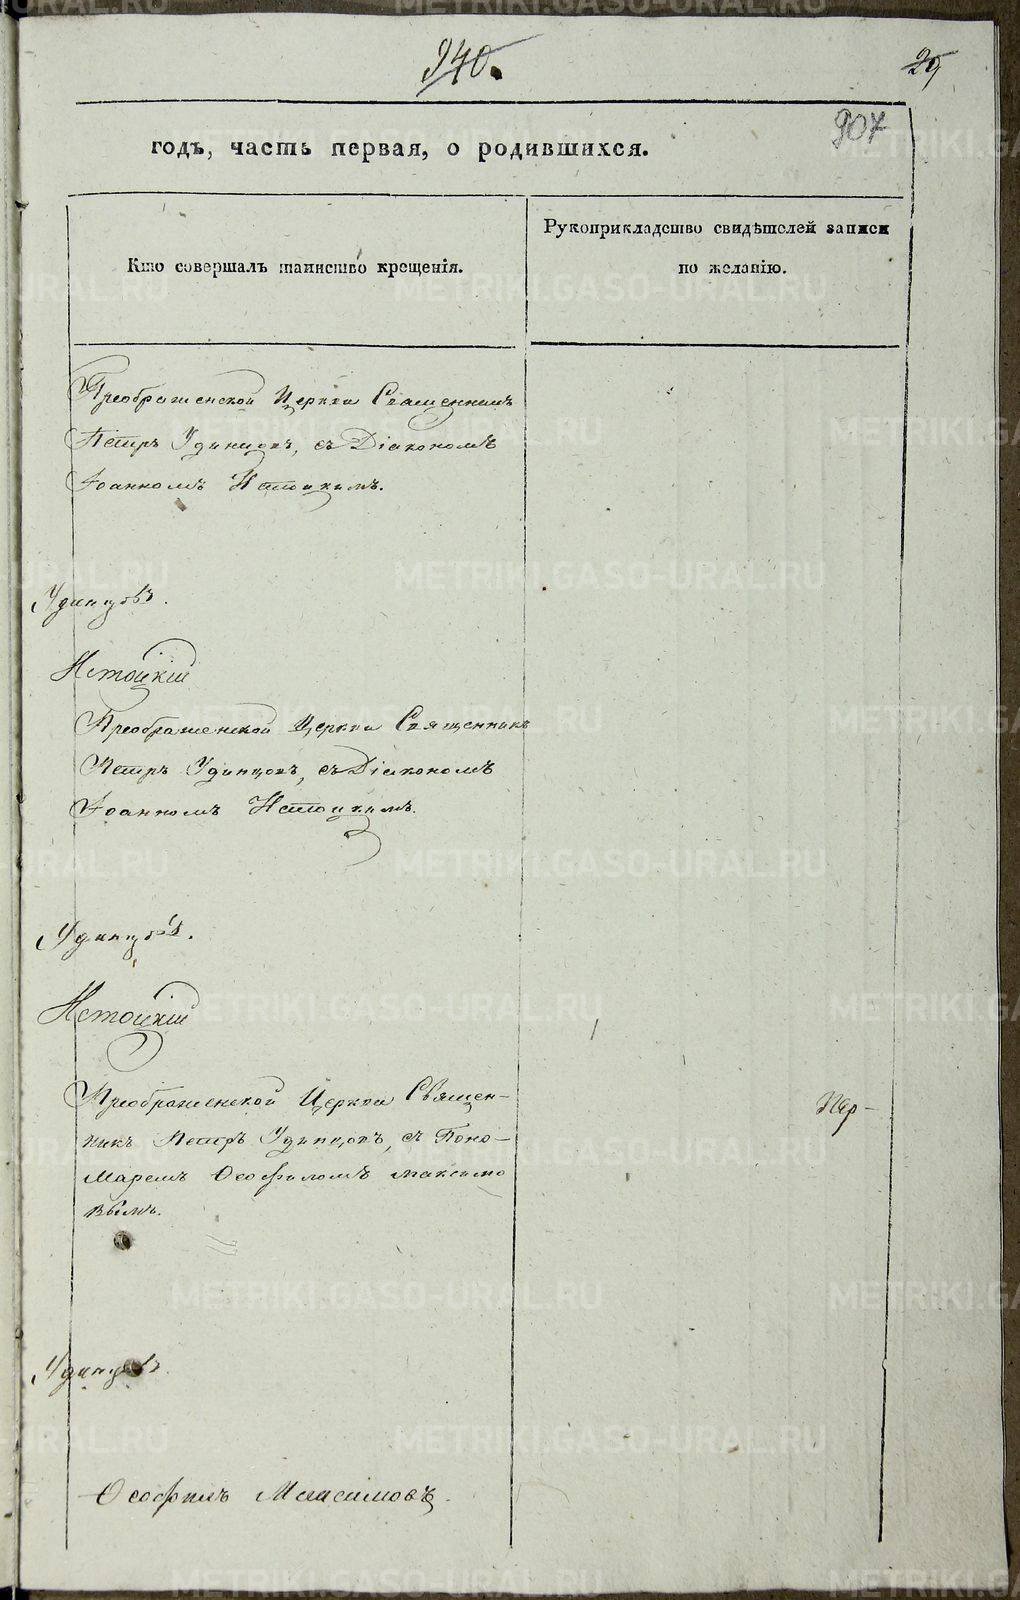 940.
29
907
годъ, часть первая, о родившихся.
Кто совершалъ таинство крещенія.
Рукоприкладство свидѣтелей записи
по желанію.
Преображенской Церкви Священникъ
Петръ Удинцовъ, съ Діакономъ
Іоанномъ Истоцкимъ.
Удинцовъ.
Истоцкій
Преображенской Церкви Священникъ
Петръ Удинцовъ, съ Діакономъ
Іоанномъ Истоцкимъ.
Удинцовъ.
Истоцкій
Преображенской Церкви Священ-
никъ Петръ Удинцовъ, съ Поно-
маремъ Ѳеофиломъ Максимо
вымъ.
Удинцовъ.
Ѳеофилъ Максимовъ.
METRIKI.GASO-URAL.RU